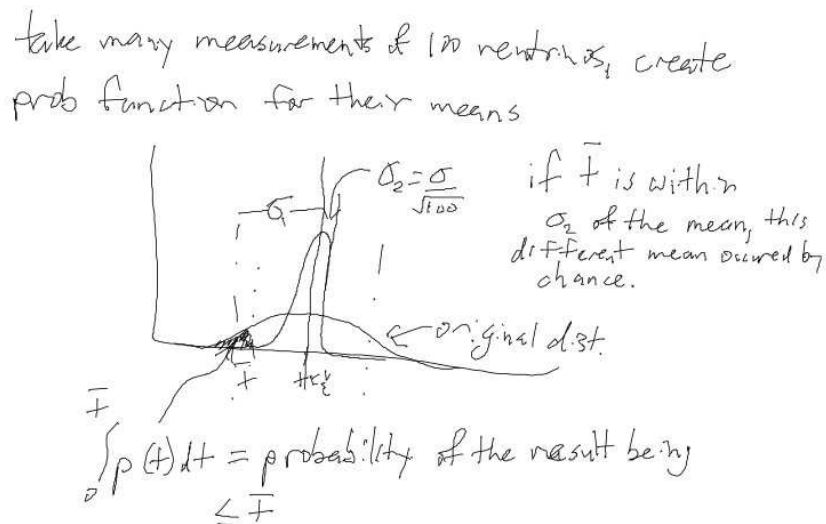 take many measurements of 100 neutrinos, create
prob function for their means
σ₂ = σ/√100
σ₁
if t̄ is within
σ₂ of the mean, this
different mean occured by
chance.
original dist.
t̄
t̄
∫₀ p(t)dt = probability of the result being
≤ t̄